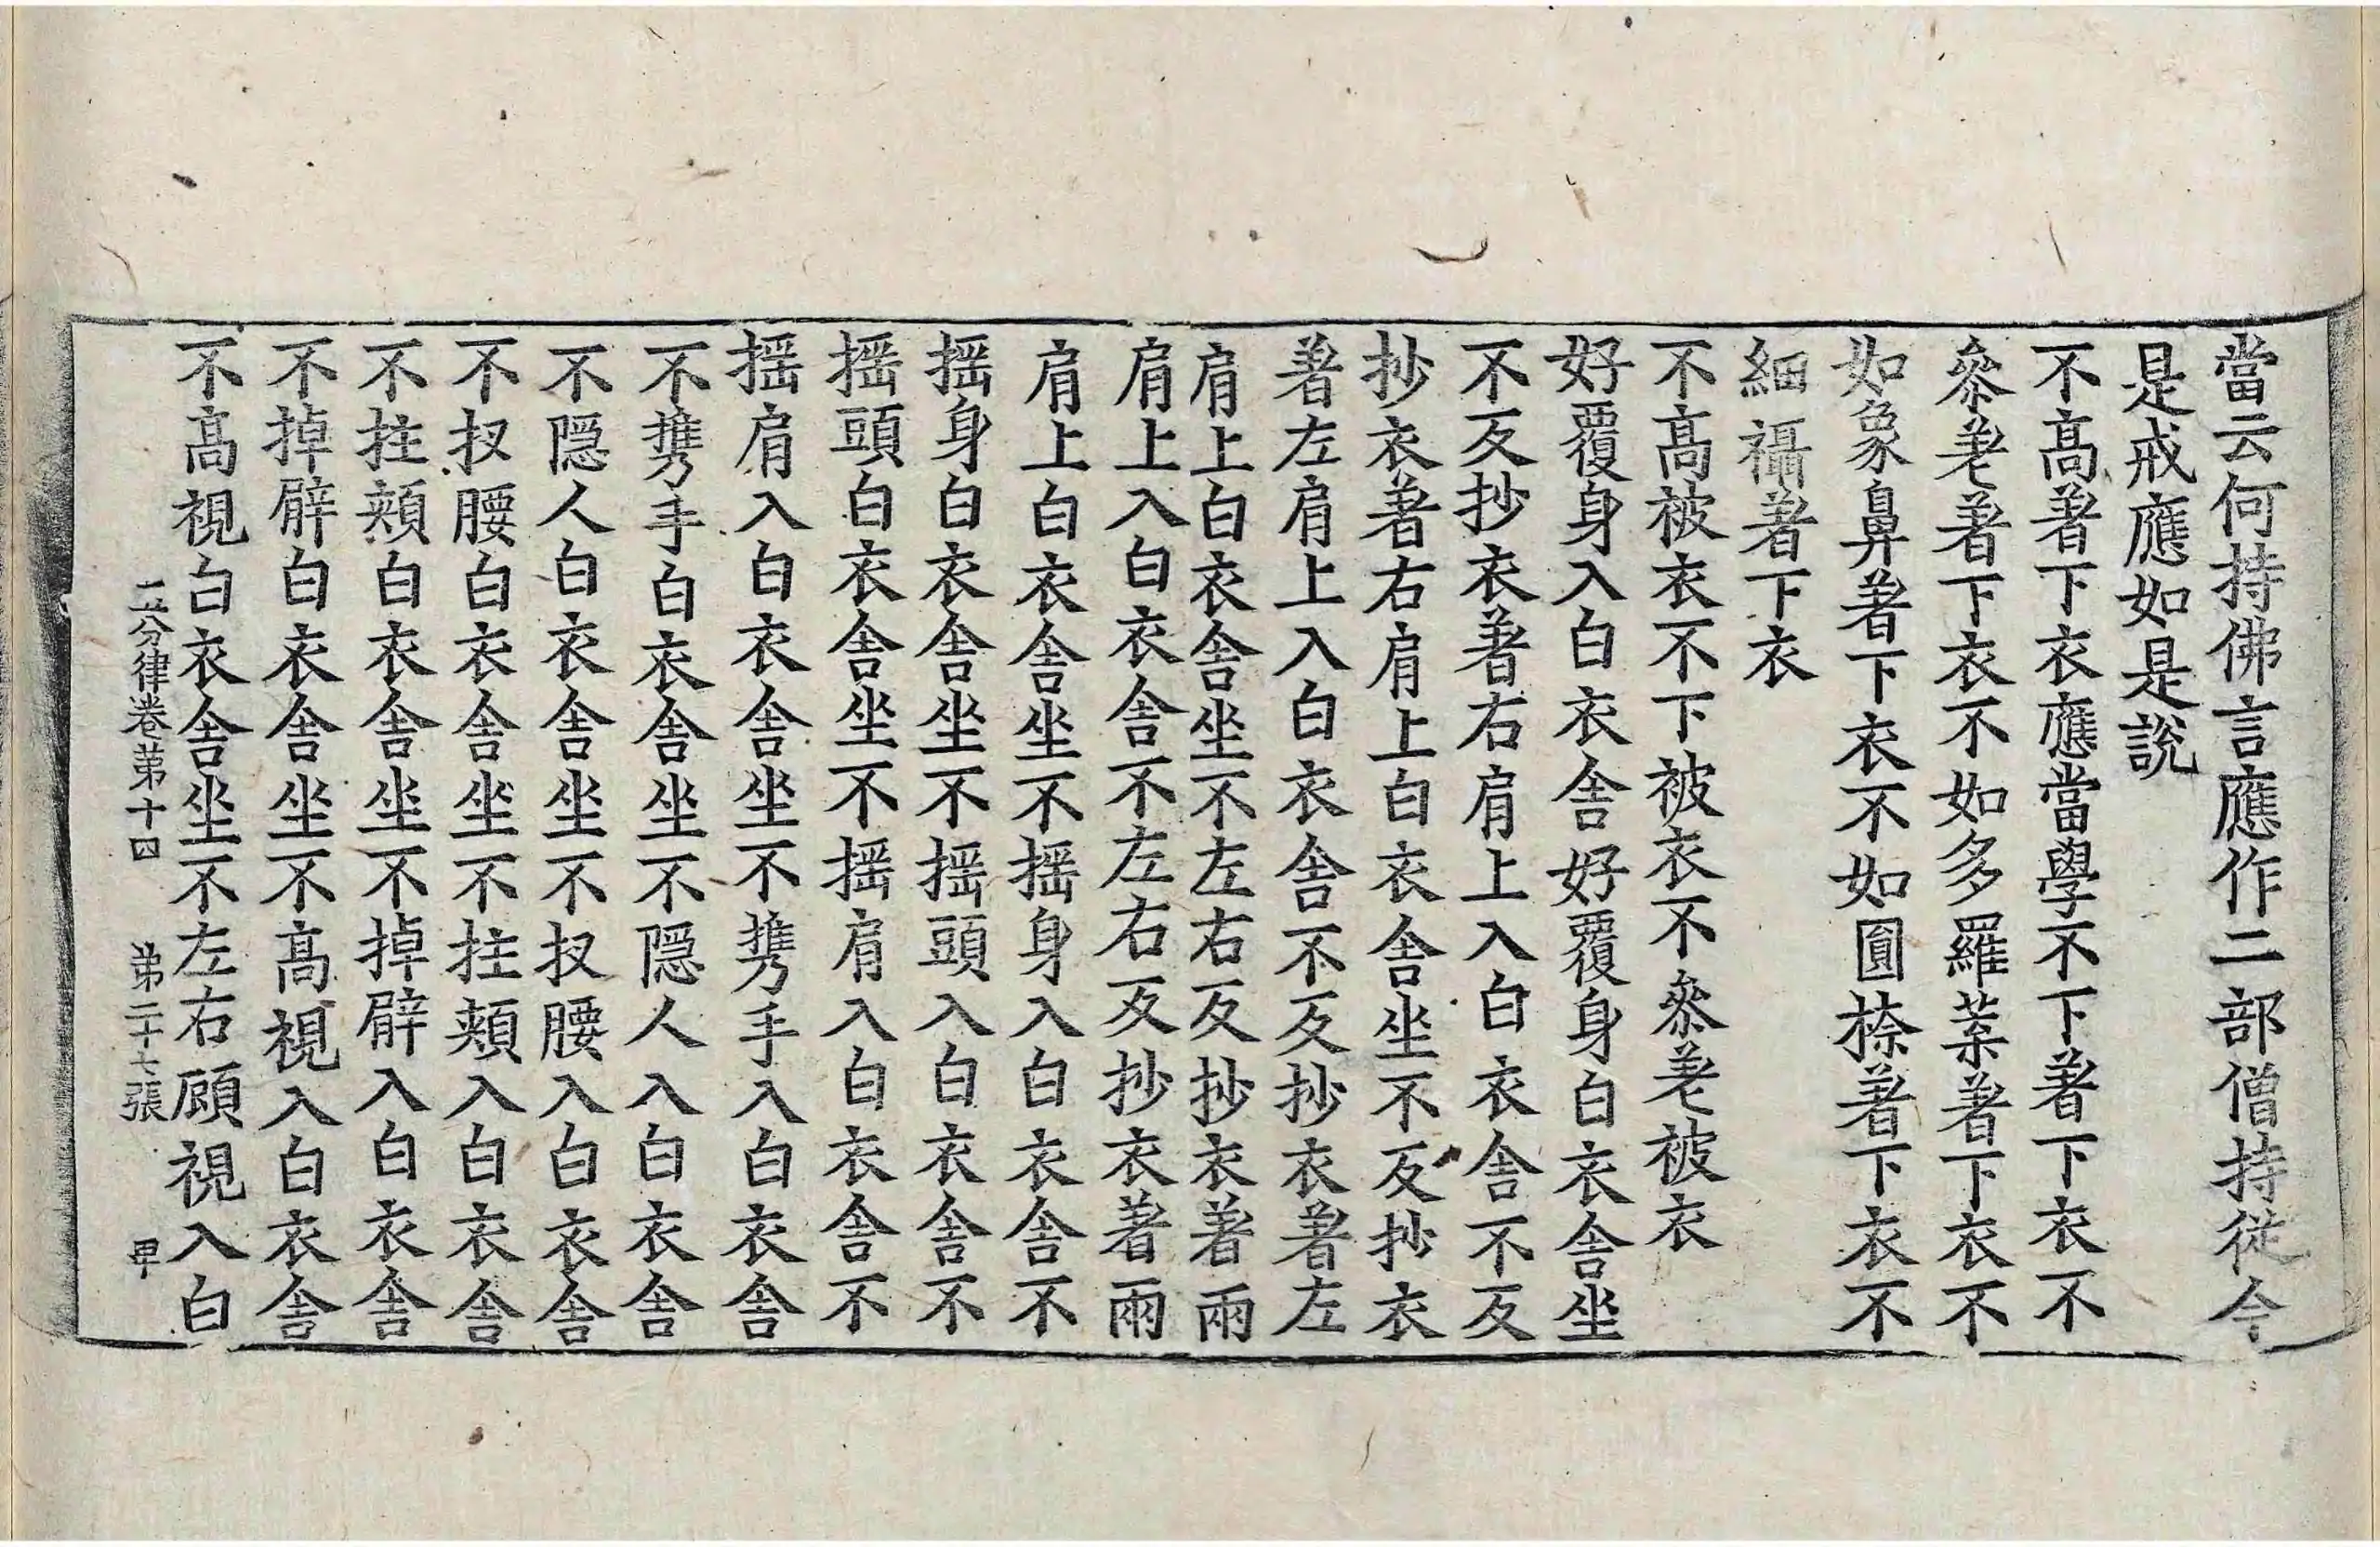 當云何持佛言應作二部僧持從今
是戒應如是說
不髙著下衣應當學不下著下衣不
叅差著下衣不如多羅葉著下衣不
如象鼻著下衣不如圓㮈著下衣不
細襵著下衣
不髙被衣不下被衣不叅差被衣
好覆身入白衣舍好覆身白衣舍坐
不反抄衣著右肩上入白衣舍不反
抄衣著右肩上白衣舍坐不反抄衣
著左肩上入白衣舍不反抄衣著左
肩上白衣舍坐不左右反抄衣著兩
肩上入白衣舍不左右反抄衣著兩
肩上白衣舍坐不搖身入白衣舍不
搖身白衣舍坐不搖頭入白衣舍不
搖頭白衣舍坐不搖肩入白衣舍不
搖肩入白衣舍坐不携手入白衣舍
不携手白衣舍坐不隱人入白衣舍
不隱人白衣舍坐不扠腰入白衣舍
不扠腰白衣舍坐不拄頰入白衣舍
不拄頰白衣舍坐不掉臂入白衣舍
不掉臂白衣舍坐不髙視入白衣舍
不髙視白衣舍坐不左右顧視入白
五分律卷第十四 第二十七張